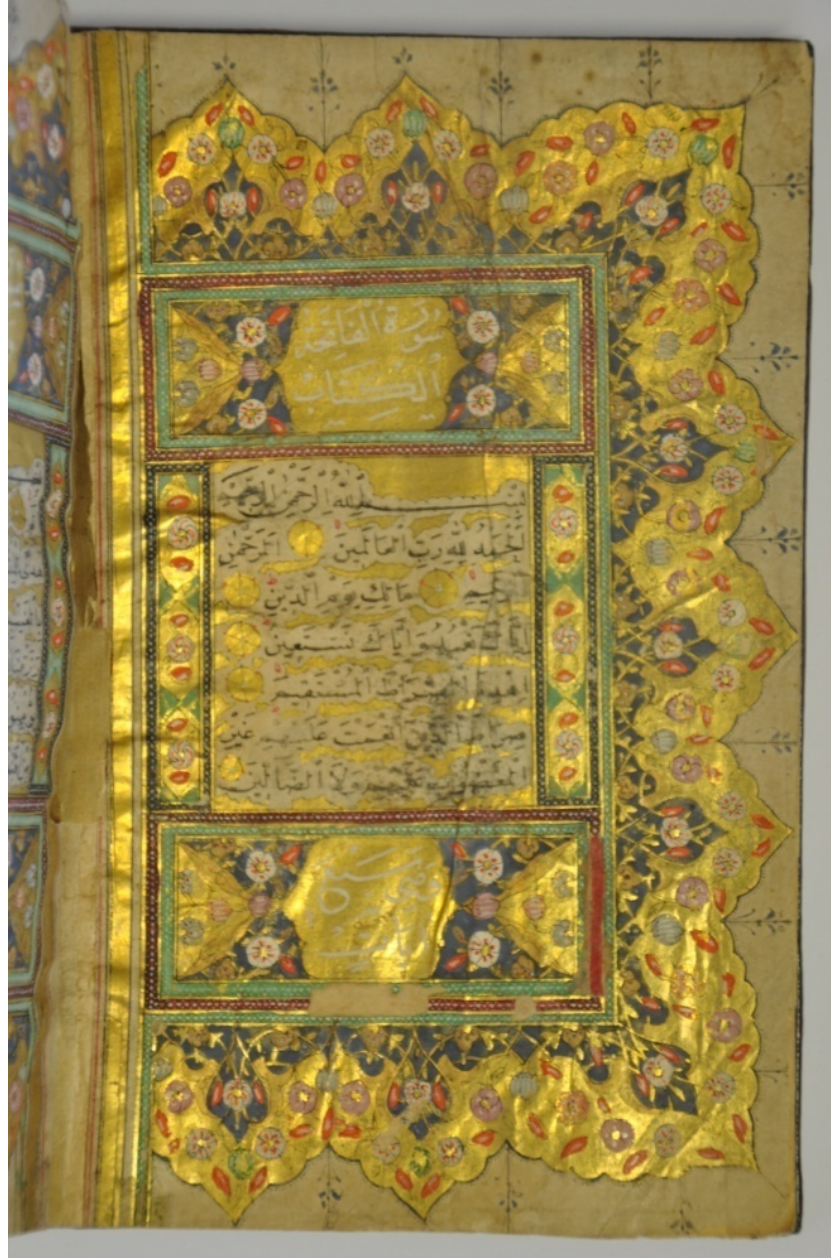 سورة الفاتحة
الكتاب
بسم الله الرحمن الرحيم
الحمد لله رب العالمين الرحمن
الرحيم مالك يوم الدين
اياك نعبد واياك نستعين
اهدنا الصراط المستقيم
صراط الذين انعمت عليهم غير
المغضوب عليهم ولا الضالين
وهي سبع
ايات